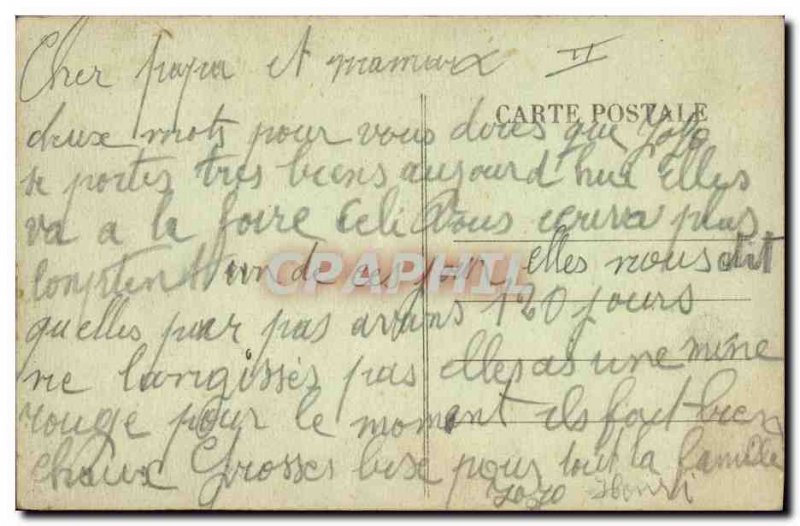 Cher papa et maman II
CARTE POSTALE
deux mots pour vous dires que Jojo
se portes tres biens aujourd hui elles
va a la foire vous ecrira plus
un de ces jour, elles nous dit
quelles par pas avans 120 jours
ne langissés pas elles as une mine
rouge pour le moment ils fait bien
chaux Grosses bise pour tout la famille
Jojo Henri
CPAPHIL